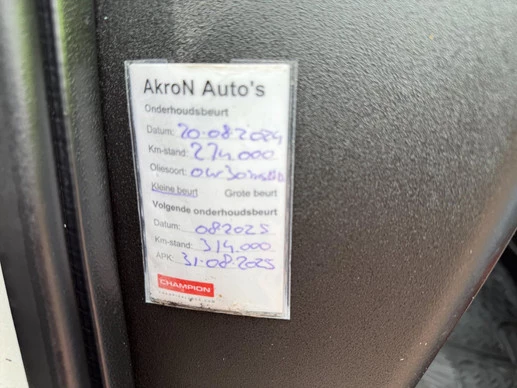 AkroN Auto's
Onderhoudsbeurt
Datum: 20-08-2024
Km-stand: 274.000
Oliesoort: 0W30
Kleine beurt Grote beurt
Volgende onderhoudsbeurt
Datum: 082025
Km-stand: 314.000
APK: 31-08-2025
CHAMPION